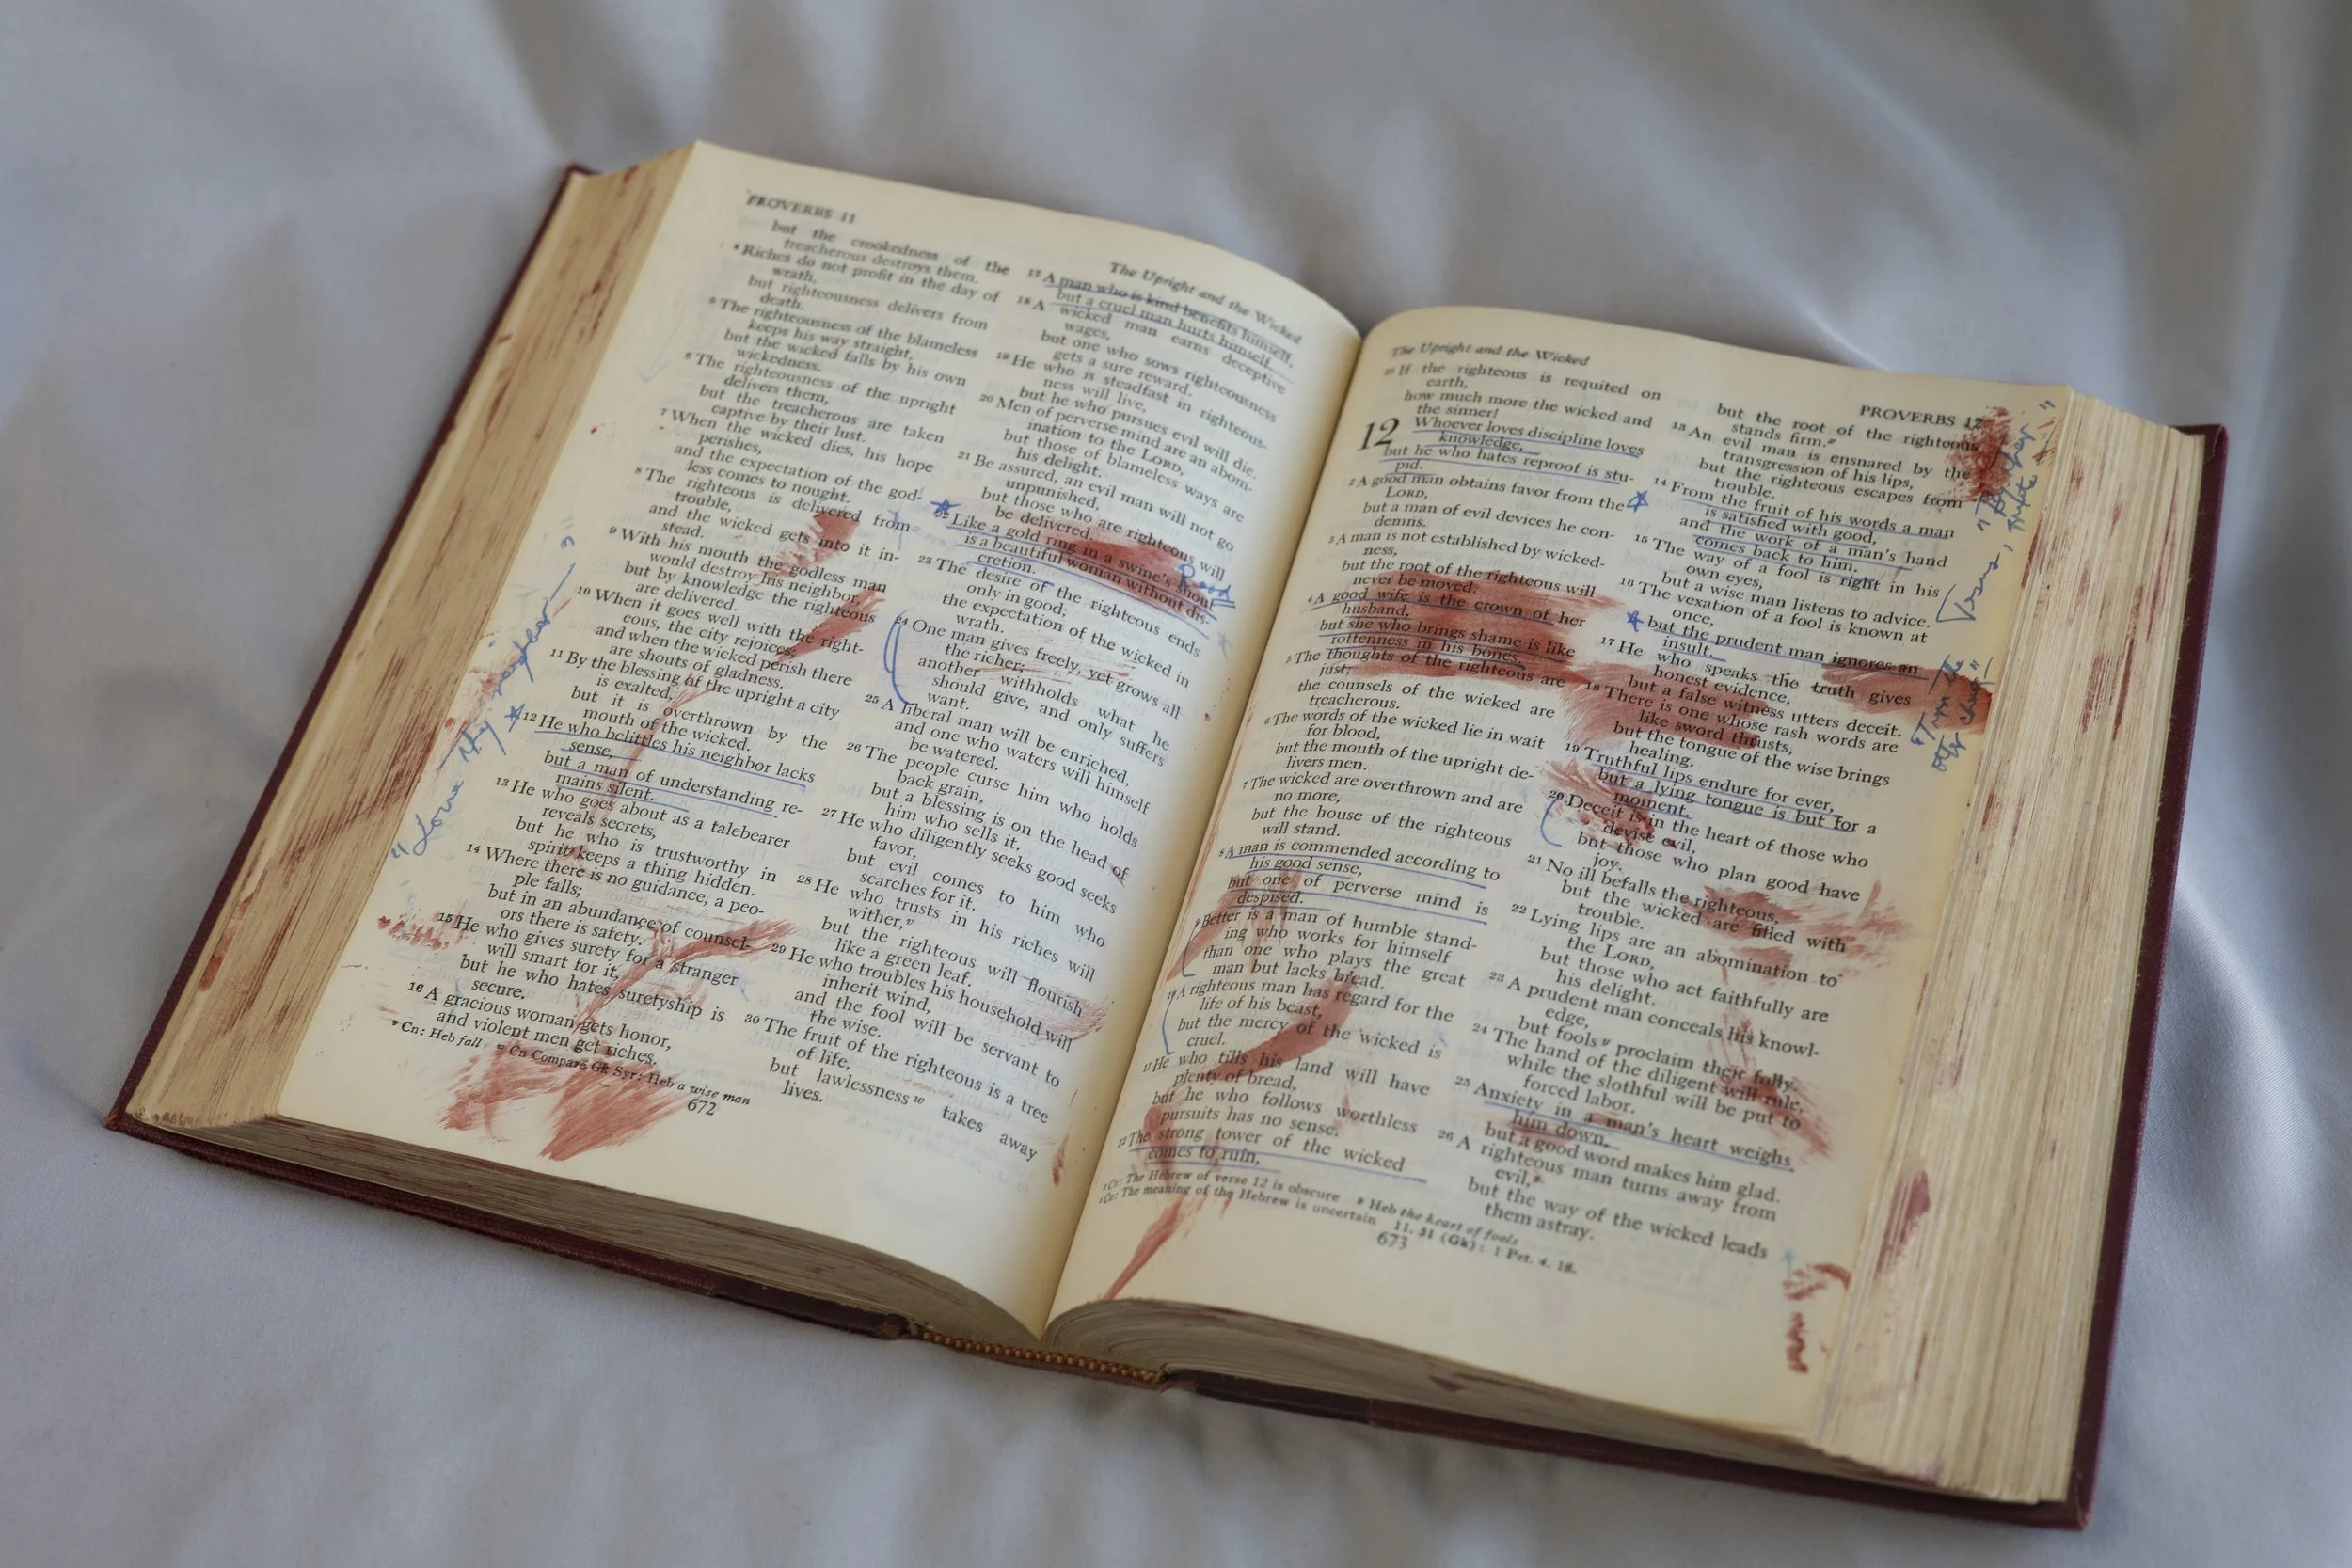 PROVERBS 11
but the crookedness of the
treacherous destroys them.
Riches do not profit in the day of
wrath,
but righteousness delivers from
death.
5 The righteousness of the blameless
keeps his way straight,
but the wicked falls by his own
wickedness.
6 The righteousness of the upright
delivers them,
but the treacherous are taken
captive by their lust.
7 When the wicked dies, his hope
perishes,
and the expectation of the god-
less comes to nought.
8 The righteous is delivered from
trouble,
and the wicked gets into it in-
stead.
9 With his mouth the godless man
would destroy his neighbor,
but by knowledge the righteous
are delivered.
10 When it goes well with the right-
cous, the city rejoices;
and when the wicked perish there
are shouts of gladness.
11 By the blessing of the upright a city
is exalted,
but it is overthrown by the
mouth of the wicked.
12 He who belittles his neighbor lacks
sense,
but a man of understanding re-
mains silent.
13 He who goes about as a talebearer
reveals secrets,
but he who is trustworthy in
spirit keeps a thing hidden.
14 Where there is no guidance, a peo-
ple falls;
but in an abundance of counsel-
ors there is safety.
15 He who gives surety for a stranger
will smart for it,
but he who hates suretyship is
secure.
16 A gracious woman gets honor,
and violent men get riches.
v Cn: Heb fall w Cn Compare Gk Syr: Heb a wise man
672
"Love thy neighbor"
The Upright and the Wicked
17 A man who is kind benefits himself,
but a cruel man hurts himself.
18 A wicked man earns deceptive
wages,
but one who sows righteousness
gets a sure reward.
19 He who is steadfast in righteous-
ness will live,
but he who pursues evil will die.
20 Men of perverse mind are an abom-
ination to the LORD,
but those of blameless ways are
his delight.
21 Be assured, an evil man will not go
unpunished,
but those who are righteous will
be delivered.
22 Like a gold ring in a swine's snout
is a beautiful woman without dis-
cretion.
23 The desire of the righteous ends
only in good;
the expectation of the wicked in
wrath.
24 One man gives freely, yet grows all
the richer;
another withholds what he
should give, and only suffers
want.
25 A liberal man will be enriched,
and one who waters will himself
be watered.
26 The people curse him who holds
back grain,
but a blessing is on the head of
him who sells it.
27 He who diligently seeks good seeks
favor,
but evil comes to him who
searches for it.
28 He who trusts in his riches will
wither,
but the righteous will flourish
like a green leaf.
29 He who troubles his household will
inherit wind,
and the fool will be servant to
the wise.
30 The fruit of the righteous is a tree
of life,
but lawlessness w takes away
lives.
The Upright and the Wicked
31 If the righteous is requited on
earth,
how much more the wicked and
the sinner!
12 Whoever loves discipline loves
knowledge,
but he who hates reproof is stu-
pid.
2 A good man obtains favor from the
LORD,
but a man of evil devices he con-
demns.
3 A man is not established by wicked-
ness,
but the root of the righteous will
never be moved.
4 A good wife is the crown of her
husband,
but she who brings shame is like
rottenness in his bones.
5 The thoughts of the righteous are
just;
the counsels of the wicked are
treacherous.
6 The words of the wicked lie in wait
for blood,
but the mouth of the upright de-
livers men.
7 The wicked are overthrown and are
no more,
but the house of the righteous
will stand.
8 A man is commended according to
his good sense,
but one of perverse mind is
despised.
9 Better is a man of humble stand-
ing who works for himself
than one who plays the great
man but lacks bread.
10 A righteous man has regard for the
life of his beast,
but the mercy of the wicked is
cruel.
11 He who tills his land will have
plenty of bread,
but he who follows worthless
pursuits has no sense.
12 The strong tower of the wicked
comes to ruin,
Cn: The Hebrew of verse 12 is obscure y Heb the heart of fools
Cn: The meaning of the Hebrew is uncertain 11. 31 (Gk): 1 Pet. 4. 18.
673
PROVERBS 12
but the root of the righteous
stands firm.
13 An evil man is ensnared by the
transgression of his lips,
but the righteous escapes from
trouble.
14 From the fruit of his words a man
is satisfied with good,
and the work of a man's hand
comes back to him.
15 The way of a fool is right in his
own eyes,
but a wise man listens to advice.
16 The vexation of a fool is known at
once,
but the prudent man ignores an
insult.
17 He who speaks the truth gives
honest evidence,
but a false witness utters deceit.
18 There is one whose rash words are
like sword thrusts,
but the tongue of the wise brings
healing.
19 Truthful lips endure for ever,
but a lying tongue is but for a
moment.
20 Deceit is in the heart of those who
devise evil,
but those who plan good have
joy.
21 No ill befalls the righteous,
but the wicked are filled with
trouble.
22 Lying lips are an abomination to
the LORD,
but those who act faithfully are
his delight.
23 A prudent man conceals his knowl-
edge,
but fools y proclaim their folly.
24 The hand of the diligent will rule,
while the slothful will be put to
forced labor.
25 Anxiety in a man's heart weighs
him down,
but a good word makes him glad.
26 A righteous man turns away from
evil,
but the way of the wicked leads
them astray.
"Turn the
other cheek"